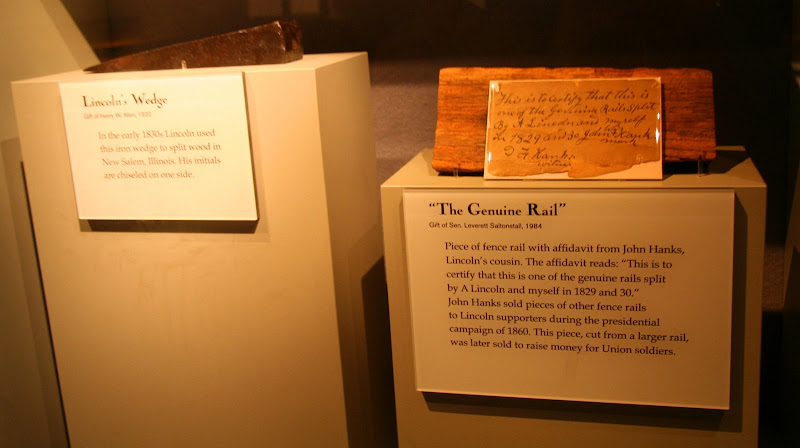 Lincoln's Wedge
Gift of Henry W. Allen, 1933
In the early 1830s Lincoln used
this iron wedge to split wood in
New Salem, Illinois. His initials
are chiseled on one side.
This is to certify that this is
one of the genuine Rails split
By A Lincoln and myself
in 1829 and 30 John Hanks
his
mark
D F Hanks
"The Genuine Rail"
Gift of Sen. Leverett Saltonstall, 1984
Piece of fence rail with affidavit from John Hanks,
Lincoln's cousin. The affidavit reads: "This is to
certify that this is one of the genuine rails split
by A Lincoln and myself in 1829 and 30."
John Hanks sold pieces of other fence rails
to Lincoln supporters during the presidential
campaign of 1860. This piece, cut from a larger rail,
was later sold to raise money for Union soldiers.